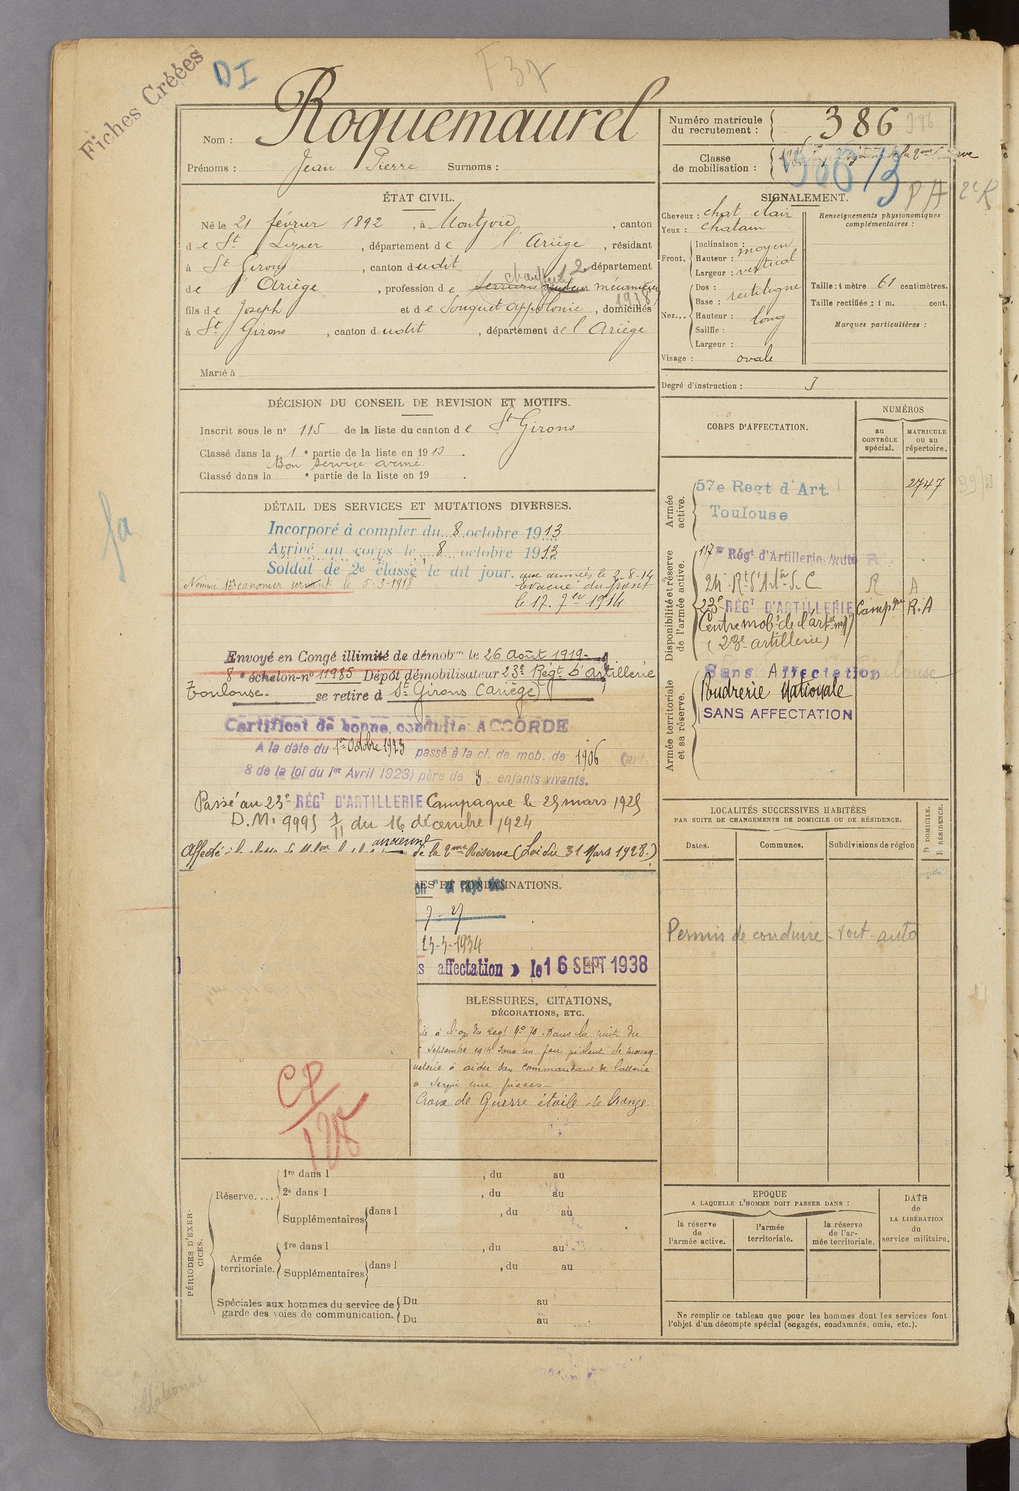 Fiches Créées
DI
F37
Nom : Roquemaurel
Prénoms : Jean Pierre Surnoms :
Numéro matricule du recrutement : 386
Classe de mobilisation :
ÉTAT CIVIL.
Né le 21 février 1892, à Montjoie, canton
de St Lizier, département de l'Ariège, résidant
à St Girons, canton dudit, département
de l'Ariège, profession de
fils de Joseph et de Souquet Appolonie, domiciliés
à St Girons, canton dudit, département de l'Ariège
Marié à
SIGNALEMENT.
Cheveux : chat clair
Yeux : chatain
Front. Inclinaison : moyen
Hauteur : vertical
Largeur :
Nez... Dos : rectiligne
Base :
Hauteur : long
Saillie :
Largeur :
Visage : ovale
Renseignements physionomiques complémentaires :
Taille : 1 mètre 61 centimètres.
Taille rectifiée : 1 m. cent.
Marques particulières :
Degré d'instruction : 3
DÉCISION DU CONSEIL DE REVISION ET MOTIFS.
Inscrit sous le n° 115 de la liste du canton de St Girons
Classé dans la 1e partie de la liste en 1913.
Bon service armé
Classé dans la e partie de la liste en 19 .
DÉTAIL DES SERVICES ET MUTATIONS DIVERSES.
Incorporé à compter du 8 octobre 1913
Arrivé au corps le 8 octobre 1913
Soldat de 2e classe le dit jour.
aux armées le 2-8-14
Nommé 1er canonnier servant le 5-3-1918
évacué du front
le 17. 7bre 1914
Envoyé en Congé illimité de démobon le 26 Août 1919
8e échelon-n° 11985 Dépôt démobilisateur 23e Régt d'Artillerie
Toulouse. se retire à St Girons (Ariège)
Certificat de bonne conduite ACCORDÉ
A la date du 1er Octobre 1923 passé à la cl. de mob. de 1906
8 de la loi du 1er Avril 1923) père de 3 enfants vivants.
Passé au 23e RÉGT D'ARTILLERIE Campagne le 25 mars 1925
D.M. 9995 1/11 du 16 décembre 1924
Affecté à la classe de de la 2me Réserve (Loi du 31 Mars 1928.)
ancienne
CORPS D'AFFECTATION.
NUMÉROS
au CONTRÔLE spécial.
MATRICULE OU AU répertoire.
Armée active.
57e Regt d'Art.
Toulouse
2747
Disponibilité et réserve de l'armée active.
117me Régt d'Artillerie Auto R
R A
23e RÉGT D'ARTILLERIE Campgne R.A
Centre mobe de l'art
(23e artillerie)
Armée territoriale et sa réserve.
Sans Affectation
Poudrerie Nationale
SANS AFFECTATION
LOCALITÉS SUCCESSIVES HABITÉES
PAR SUITE DE CHANGEMENTS DE DOMICILE OU DE RÉSIDENCE.
Dates.
Communes.
Subdivisions de région
D. DOMICILE.
R. RÉSIDENCE.
Permis de conduire - voit. auto
ES ET CONDAMNATIONS.
7-27
23-3-1934
s affectation » le 16 SEPT 1938
BLESSURES, CITATIONS,
DÉCORATIONS, ETC.
à l'o. du Régt N° 70. Dans la nuit du
septembre 1914 sous un feu violent de mousq
ueterie a aidé son commandant de batterie
à servir une pièces
Croix de Guerre étoile de bronze.
CP/128
PÉRIODES D'EXERCICES.
Réserve.... 1re dans l , du au
2e dans l , du au
Supplémentaires dans l , du au
Armée territoriale. 1re dans l , du au
Supplémentaires dans l , du au
Spéciales aux hommes du service de garde des voies de communication. Du au
Du au
EPOQUE
A LAQUELLE L'HOMME DOIT PASSER DANS :
la réserve de l'armée active.
l'armée territoriale.
la réserve de l'armée territoriale.
DATE de LA LIBÉRATION du service militaire.
Ne remplir ce tableau que pour les hommes dont les services font
l'objet d'un décompte spécial (engagés, condamnés, omis, etc.).